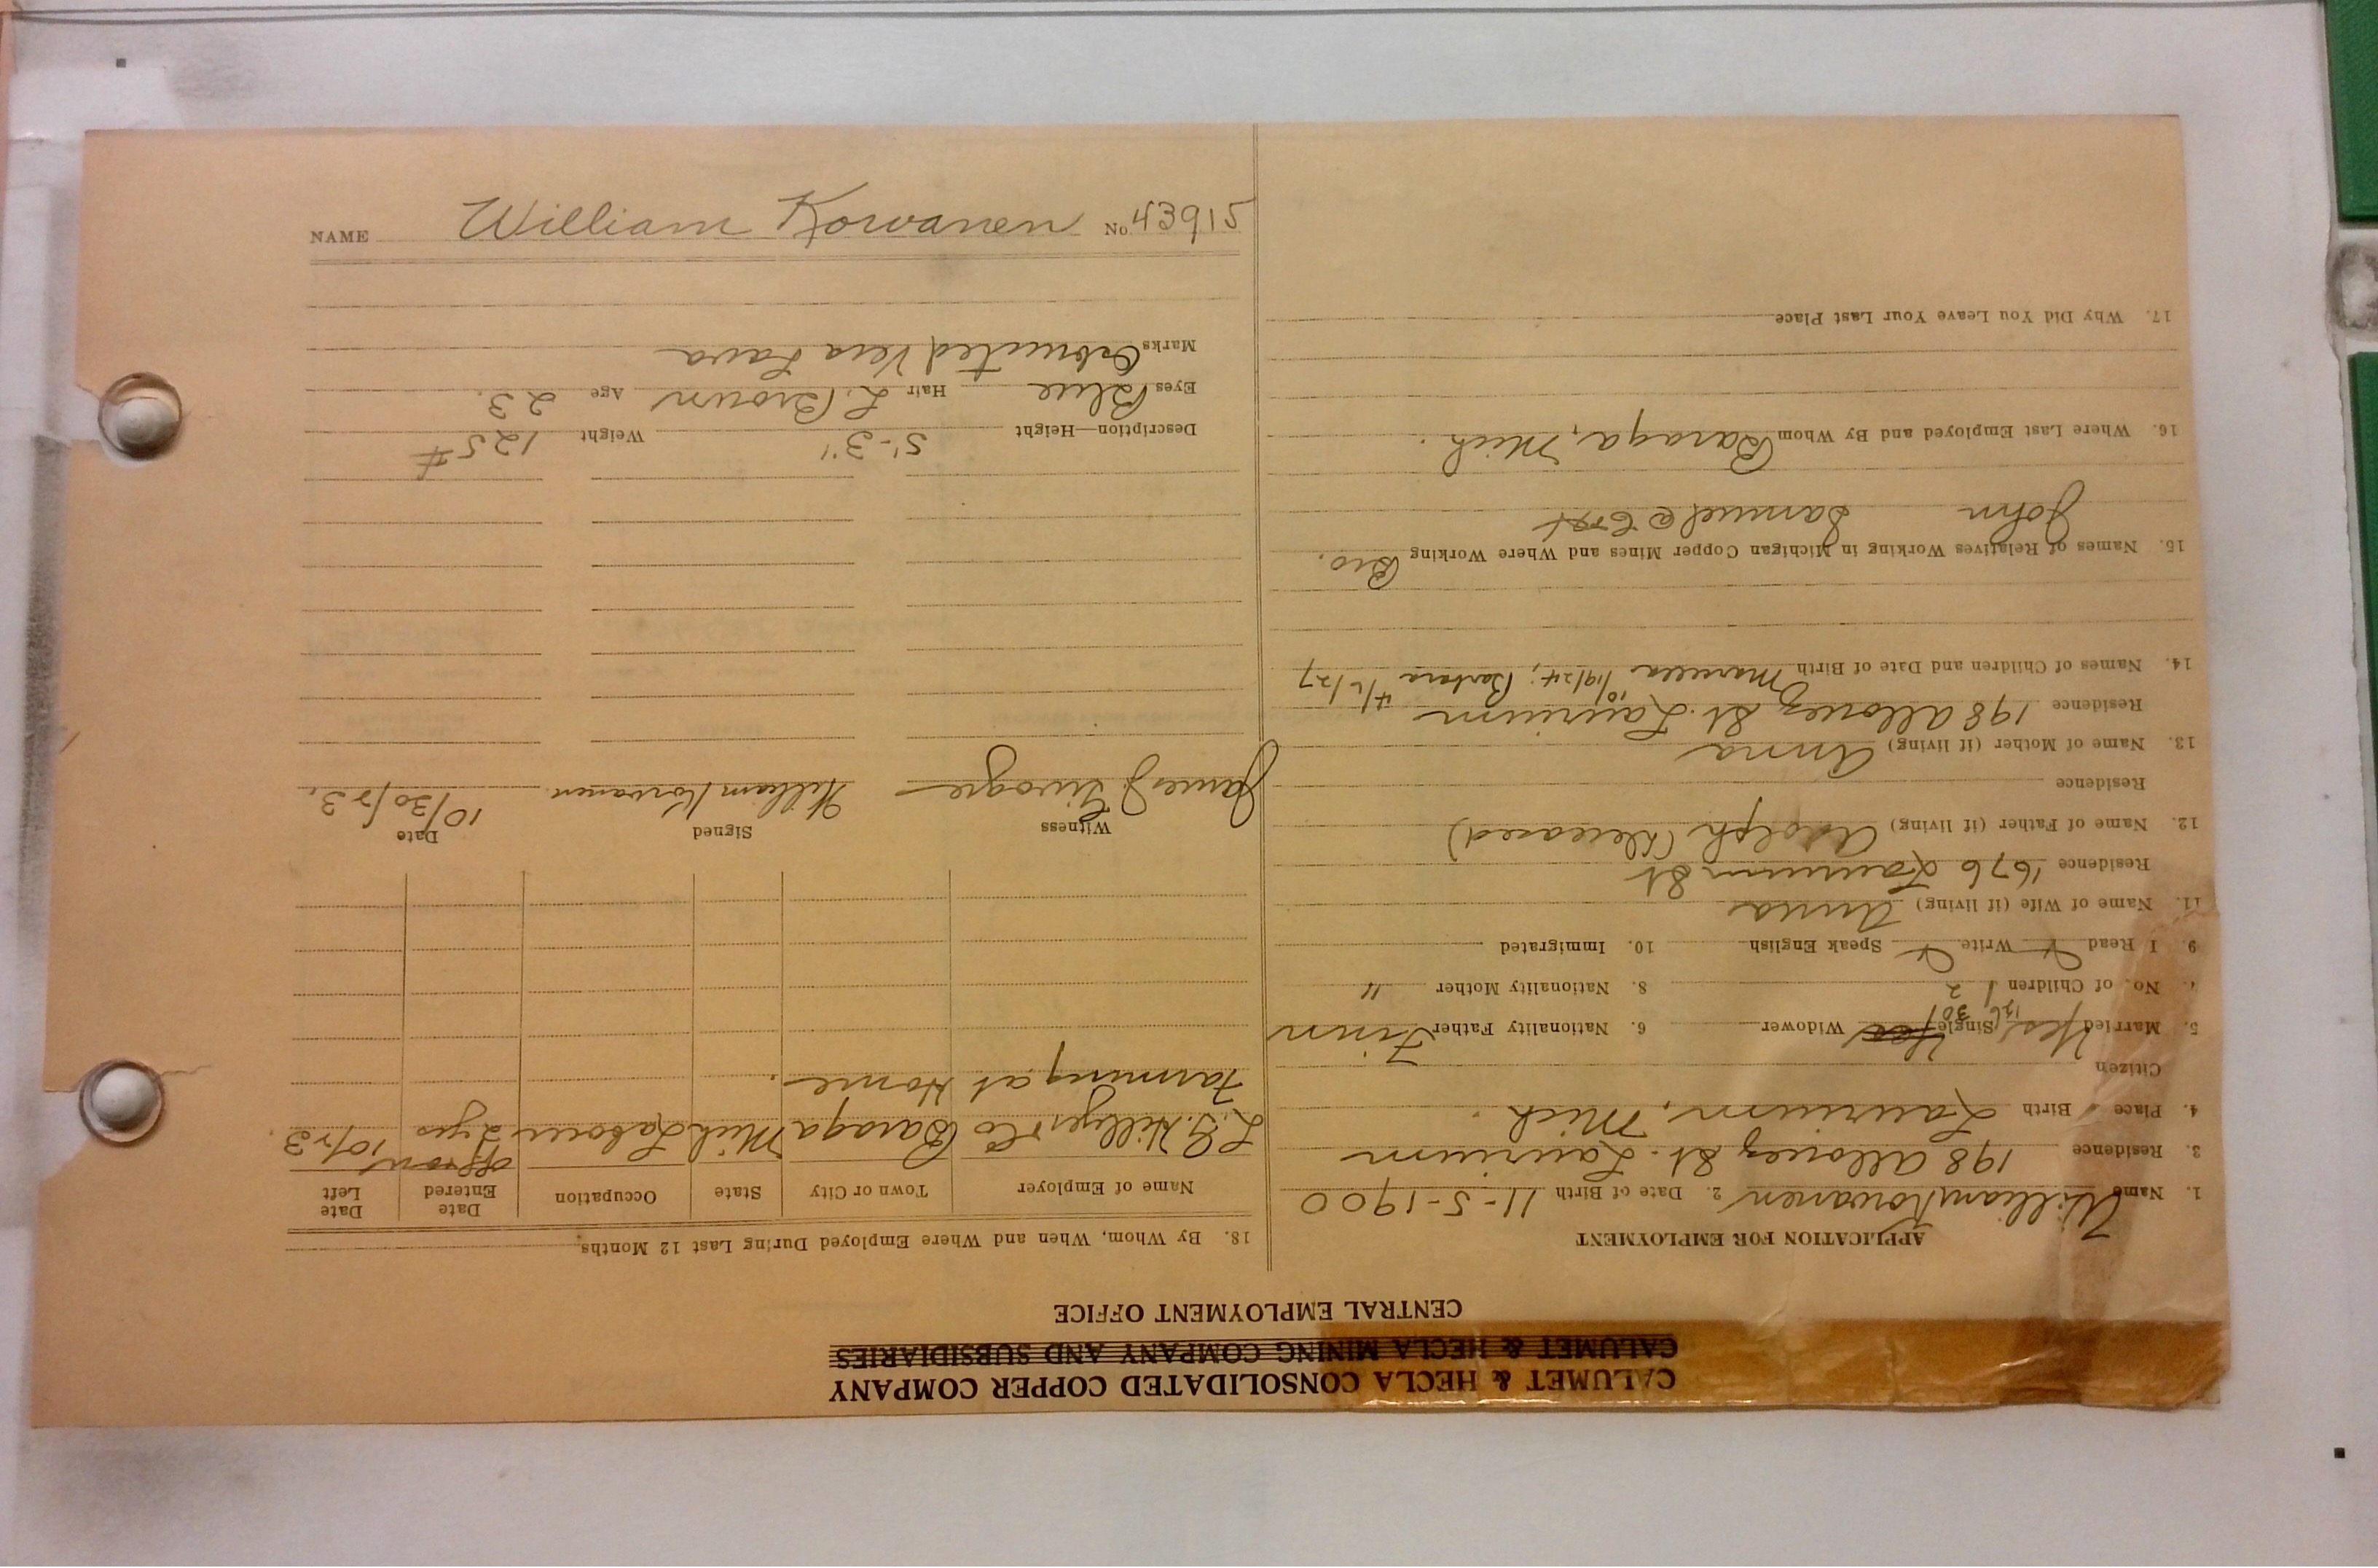 CALUMET & HECLA CONSOLIDATED COPPER COMPANY
CALUMET & HECLA MINING COMPANY AND SUBSIDIARIES
CENTRAL EMPLOYMENT OFFICE
APPLICATION FOR EMPLOYMENT
1. Name William Kowanen 2. Date of Birth 11-5-1900
3. Residence 198 Allouez St. Laurium
4. Place Birth Laurium, Mich.
Citizen
5. Married Yes Single Yes Widower 6. Nationality Father Finn
No. of Children 1 2 8. Nationality Mother "
9. I Read Write Speak English 10. Immigrated
11. Name of Wife (if living) Anna
Residence 1676 Laurium St
12. Name of Father (if living) Adolph (Deceased)
Residence
13. Name of Mother (if living) Anna
Residence 198 Allouez St. Laurium
14. Names of Children and Date of Birth Marcella 10/19/24; Barbara 4/6/27
15. Names of Relatives Working in Michigan Copper Mines and Where Working Bro.
John Samuel
16. Where Last Employed and By Whom Baraga, Mich.
17. Why Did You Leave Your Last Place
18. By Whom, When and Where Employed During Last 12 Months
Name of Employer Town or City State Occupation Date Entered Date Left
L.G. Hillyer & Co Baraga Mich Laborer off & on 2 yrs 10/23.
Farming at Home.
Witness Signed Date
James J. William Kowanen 10/30/23.
Description—Height 5'-3" Weight 125#
Eyes Blue Hair L. Brown Age 23.
Marks
NAME William Kowanen No 43915